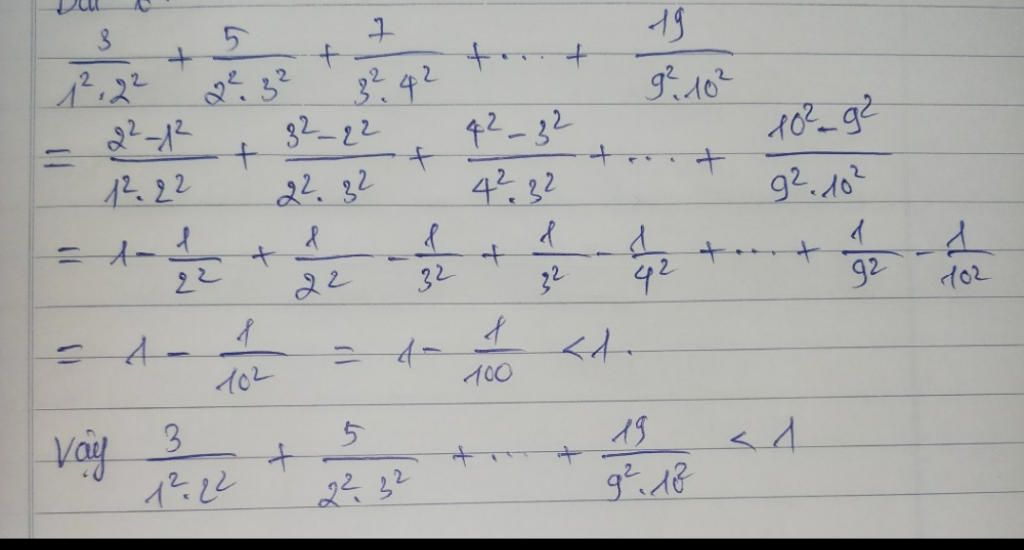 3/1²·2² + 5/2²·3² + 7/3²·4² + ... + 19/9²·10²
= 2²-1²/1²·2² + 3²-2²/2²·3² + 4²-3²/4²·3² + ... + 10²-9²/9²·10²
= 1 - 1/2² + 1/2² - 1/3² + 1/3² - 1/4² + ... + 1/9² - 1/10²
= 1 - 1/10² = 1 - 1/100 < 1.
Vậy 3/1²·2² + 5/2²·3² + ... + 19/9²·10² < 1